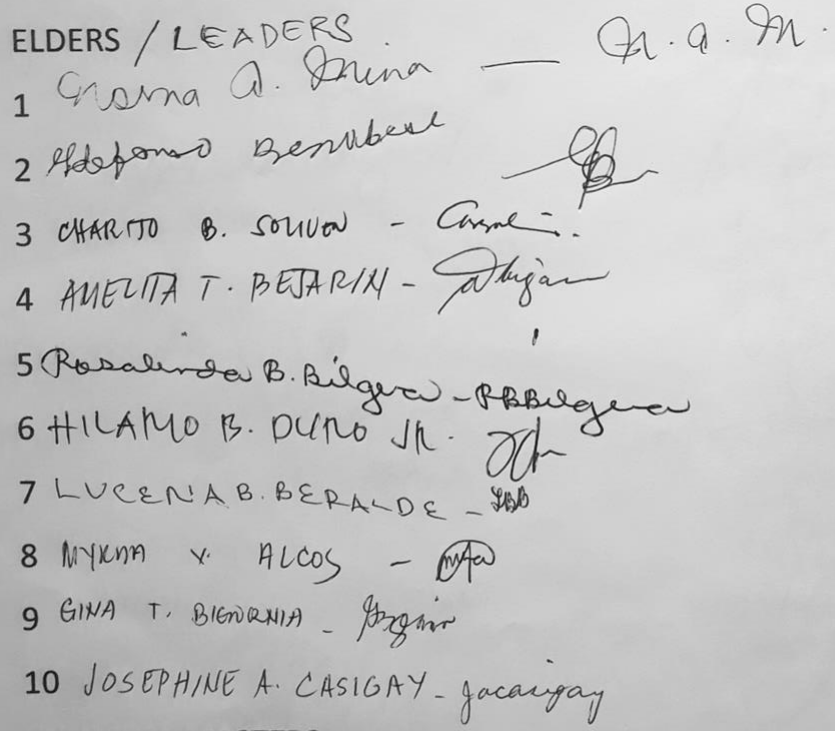 ELDERS / LEADERS
1 A. Mina — N. a. M.
2 Ildefonso
3 CHARITO B. SOLIVEN -
4 AMELITA T. BEJARIN -
5 Rosalinda B. Bilgera - RBBilgera
6 HILARIO B. DUNO JR.
7 LUCENA B. BERALDE - LBB
8 MYRNA V. ALCOS -
9 GINA T. BIGORNIA -
10 JOSEPHINE A. CASIGAY - jacasigay